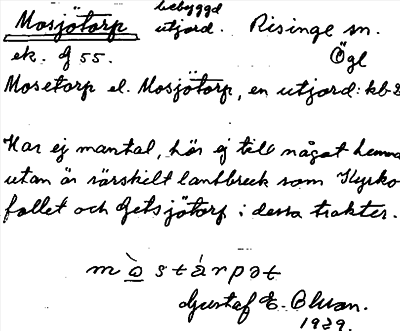 Mosjötorp bebyggd utjord. Risinge sn.
ek. f 55. Ögl
Mosetorp el. Mosjötorp, en utjord: kb-8
Har ej mantal, hör ej till något hemma
utan är särskilt lantbruk som Kyrko-
fallet och Getsjötorp i dessa trakter.
mo̱̊starpət
Gustaf E. Olsson.
1929.